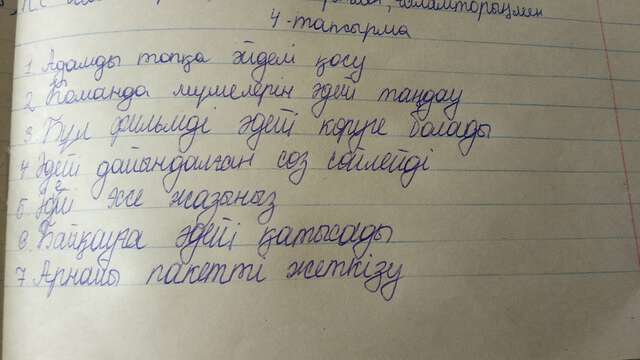 ғаламторыңмен
4-тапсырма
1 Адамды топқа әйделі қосу
2 Команда мүшелерін әдейі таңдау
3 Бұл фильмді әдейі көруге болады
4 Әдейі дайындалған сөз сөйлейді
5 Әдейі хе жазыңыз
6. Байқауға әдейі қатысады
7 Арнайы пакетті жеткізу